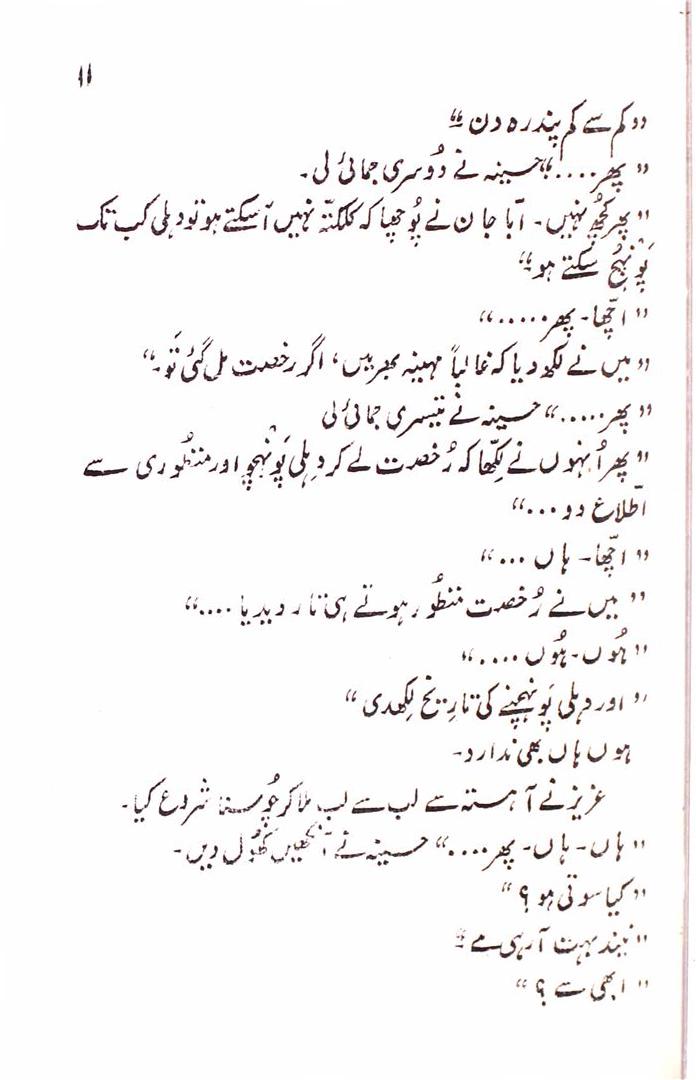 ۱۱
"کم سے کم پندرہ دن"
"پھر...." حسینہ نے دُوسری جمائی لی۔
"پھر کچھ نہیں۔ ابّا جان نے پُوچھا کہ کلکتّہ نہیں آ سکتے ہو تو دہلی کب تک
پَونہچ سکتے ہو"
"اچّھا۔ پھر....."
"میں نے لکھ دیا کہ غالباً مہینہ بھر میں، اگر رخصت مل گئی تَو۔"
"پھر....." حسینہ نے تیسری جمائی لی
"پھر اُنہوں نے لِکھّا کہ رُخصت لے کر دہلی پَونہچو اور منظُوری سے
اطّلاع دو..."
"اچّھا۔ ہاں ..."
"میں نے رُخصت منظُور ہوتے ہی تار دیدیا ...."
"ہُوں۔ ہُوں ...."
"اور دہلی پَونہچنے کی تاریخ لِکھدی"
ہوں ہاں بھی ندارد۔
عزیز نے آہستہ سے لب سے لب ملا کر چُوسنا شروع کیا۔
"ہاں۔ ہاں۔ پھر...." حسینہ نے آنکھیں کھُول دیں۔
"کیا سوتی ہو ؟"
"نیند بہت آ رہی ہے"
"ابھی سے ؟"